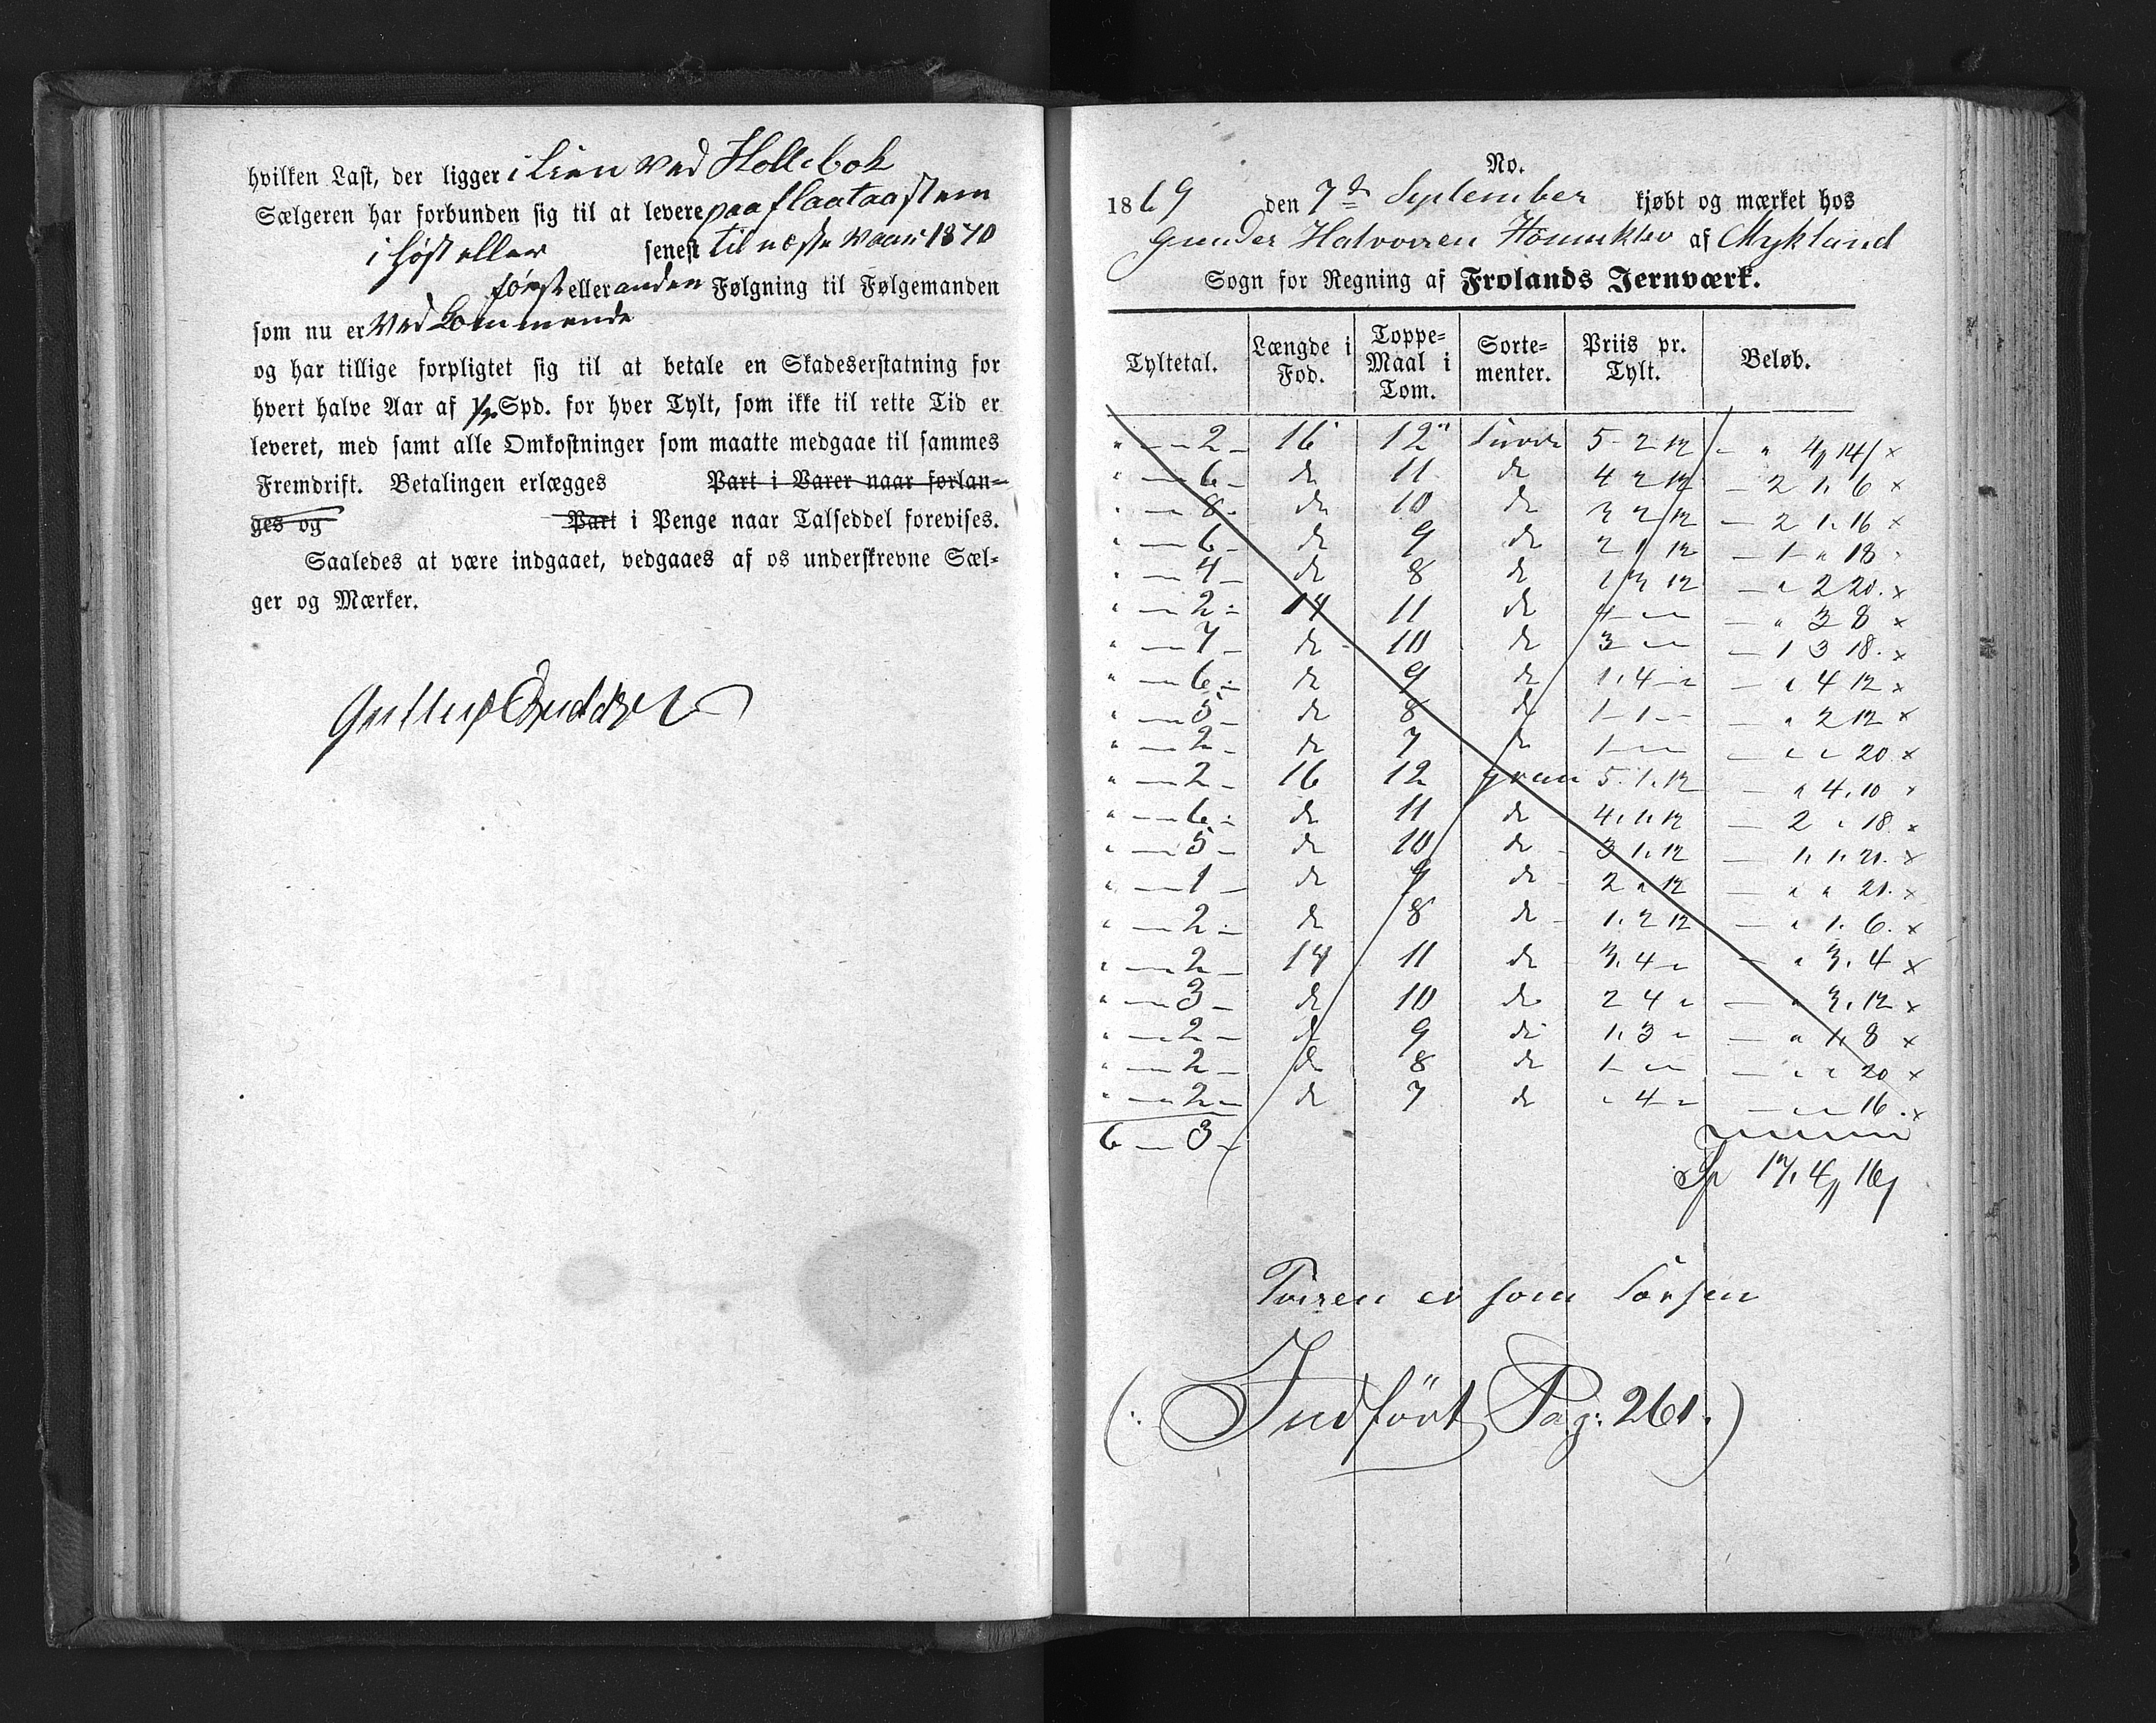 hvilken Last, der ligger i Lien ved Hollebok
Sælgeren har forbunden sig til at levere paa flaataastem
i höst eller senest til næste Vaar 1870
först eller anden Følgning til Følgemanden
som nu er Ved Kommende
og har tillige forpligtet sig til at betale en Skadeserstatning for
hvert halve Aar af 1/2 Spd. for hver Tylt, som ikke til rette Tid er
leveret, med samt alle Omkostninger som maatte medgaae til sammes
Fremdrift. Betalingen erlægges Part i Varer naar forlan-
ges og Part i Penge naar Talseddel forevises.
Saaledes at være indgaaet, vedgaaes af os underskrevne Sæl-
ger og Mærker.
No.
1869 den 7de September kjøbt og mærket hos
Gunder Halvorsen af Mykland
Sogn for Regning af Frolands Jernværk.
Tyltetal. Længde i Fod. Toppe-Maal i Tom. Sorte-menter. Priis pr. Tylt. Beløb.
" — 2 — 16' 12" Furru 5 - 2 12 — " 4 14 x
" — 6 — do 11 do 4 2 12 — 2 1 6 x
" — 8 — do 10 do 3 2 12 — 2 1 16 x
" — 6 — do 9 do 2 1 12 — 1 " 18 x
" — 4 — do 8 do 1 3 12 — " 2 20 x
" — 2 — 14 11 do 4 — " — " 3 8 x
" — 7 — do 10 do 3 — " — 1 3 18 x
" — 6 — do 9 do 1. 4 " — " 4 12 x
" — 5 — do 8 do 1 - 1 - — " 2 12 x
" — 2 — do 7 do 1 — " — " " 20 x
" — 2 — 16 12 gran 5. 1. 12 — " 4. 10 x
" — 6 — do 11 do 4. 1. 12 — 2 " 18 x
" — 5 — do 10 do 3 1. 12 — 1. 1. 21. x
" — 1 — do 9 do 2 " 12 — " " 21. x
" — 2 — do 8 do 1. 2 12 — " 1. 6. x
" — 2 — 14 11 do 3. 4 " — " 3. 4 x
" — 3 — do 10 do 2 4 " — " 3. 12 x
" — 2 — do 9 do 1. 3 " — " 1. 8 x
" — 2 — do 8 do 1 — " — " " 20 x
" — 2 — do 7 do " 4 " — " " 16. x
6 — 3 —
Sp 17. 4 16
er som
(: Indfört Pag: 261.)